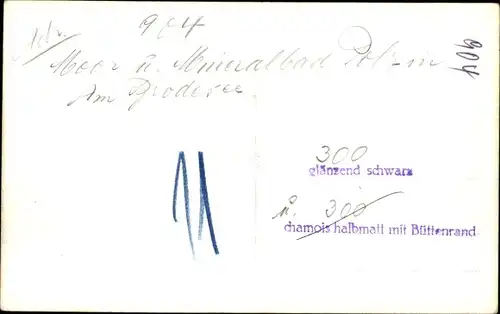 904
Moor u. Mineralbad Polzin
Am Brodesee.
904
300
glänzend schwarz
u. 300
chamois halbmatt mit Büttenrand